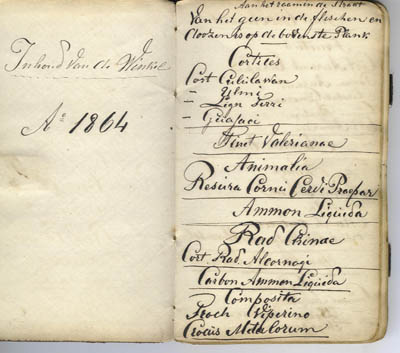 Inhoud van de Winkel
A° 1864
Aan het raam in de straat
Van het geen in de flesschen en
doozen is op de bovenste Plank
Cortices
Cort Culilawan
— Ulmi
— Lign Ferri
— Guajaci
Tinct Valerianae
Animalia
Resura Cornu Cervi Praepar
Ammon Liquida
Rad Chinae
Cort Rad Alcornoqi
Carbon Ammon Liquida
Composita
Troch Viperino
Crocus Metalorum